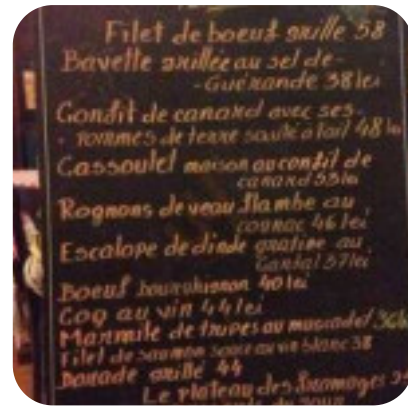 Filet de boeuf grille 58
Bavette grillée au sel de-
-Guérande 38 lei
Confit de canard avec ses-
- pommes de terre sauté à l'ail 48 lei
Cassoulet maison au confit de
canard 55 lei
Rognons de veau flambe au
cognac 46 lei
Escalope de dinde gratine au
Cantal 37 lei
Boeuf bourguignon 40 lei
Coq au vin 44 lei
Marmite de tripes au muscadet 36
Filet de saumon sauce au vin blanc 38
Dorade grillé 44
Le plateau des fromages